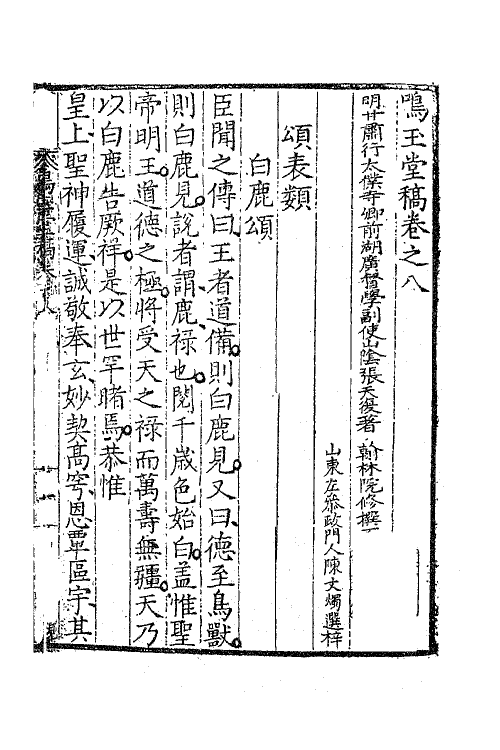 鳴玉堂稿卷之八
明甘肅行太僕寺卿前湖廣督學副使山陰張天復著 翰林院修撰
山東左叅政門人陳文燭選梓
頌表類
白鹿頌
臣聞之傳曰王者道備則白鹿見又曰德至鳥獸
則白鹿見說者謂鹿祿也閱千歲色始白盖惟聖
帝明王道德之極將受天之祿而萬壽無疆天乃
以白鹿告厥祥是以世罕睹焉恭惟
皇上聖神履運誠敬奉玄妙契髙穹恩覃區宇其